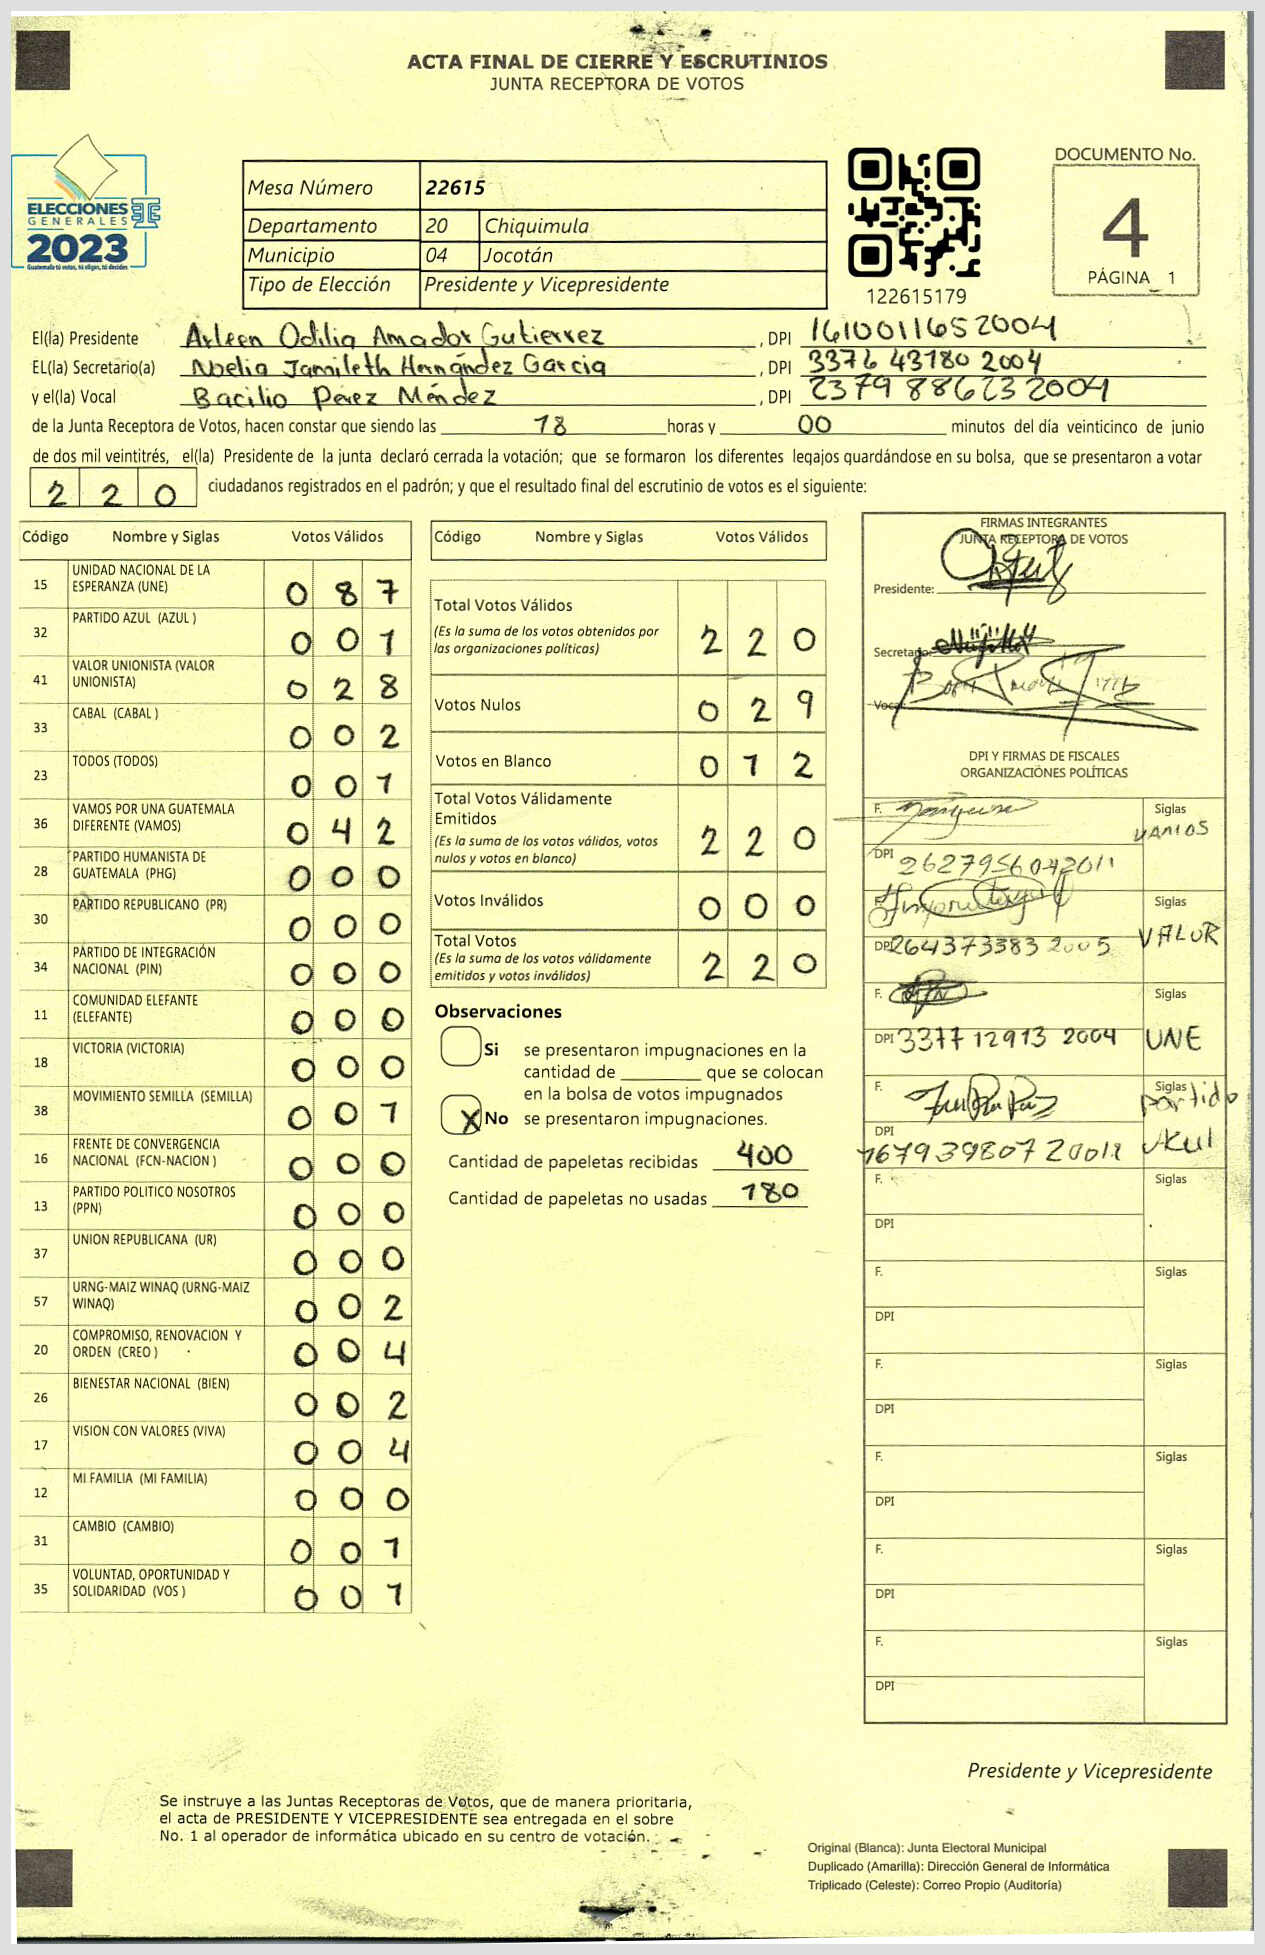 ACTA FINAL DE CIERRE Y ESCRUTINIOS
JUNTA RECEPTORA DE VOTOS
ELECCIONES
GENERALES
2023
Guatemala tú votas, tú eliges, tú decides
Mesa Número 22615
Departamento 20 Chiquimula
Municipio 04 Jocotán
Tipo de Elección Presidente y Vicepresidente
122615179
DOCUMENTO No.
4
PÁGINA 1
El(la) Presidente Arleen Odilia Amador Gutierrez, DPI 1610011652004
EL(la) Secretario(a) Noelia Jamileth Hernández Garcia, DPI 3376 43180 2004
y el(la) Vocal Bacilio Pérez Méndez, DPI 2379 88623 2004
de la Junta Receptora de Votos, hacen constar que siendo las 18 horas y 00 minutos del día veinticinco de junio
de dos mil veintitrés, el(la) Presidente de la junta declaró cerrada la votación; que se formaron los diferentes legajos guardándose en su bolsa, que se presentaron a votar
220 ciudadanos registrados en el padrón; y que el resultado final del escrutinio de votos es el siguiente:
Código Nombre y Siglas Votos Válidos
15 UNIDAD NACIONAL DE LA ESPERANZA (UNE) 0 8 7
32 PARTIDO AZUL (AZUL ) 0 0 1
41 VALOR UNIONISTA (VALOR UNIONISTA) 0 2 8
33 CABAL (CABAL ) 0 0 2
23 TODOS (TODOS) 0 0 1
36 VAMOS POR UNA GUATEMALA DIFERENTE (VAMOS) 0 4 2
28 PARTIDO HUMANISTA DE GUATEMALA (PHG) 0 0 0
30 PARTIDO REPUBLICANO (PR) 0 0 0
34 PARTIDO DE INTEGRACIÓN NACIONAL (PIN) 0 0 0
11 COMUNIDAD ELEFANTE (ELEFANTE) 0 0 0
18 VICTORIA (VICTORIA) 0 0 0
38 MOVIMIENTO SEMILLA (SEMILLA) 0 0 1
16 FRENTE DE CONVERGENCIA NACIONAL (FCN-NACION ) 0 0 0
13 PARTIDO POLITICO NOSOTROS (PPN) 0 0 0
37 UNION REPUBLICANA (UR) 0 0 0
57 URNG-MAIZ WINAQ (URNG-MAIZ WINAQ) 0 0 2
20 COMPROMISO, RENOVACION Y ORDEN (CREO ) 0 0 4
26 BIENESTAR NACIONAL (BIEN) 0 0 2
17 VISION CON VALORES (VIVA) 0 0 4
12 MI FAMILIA (MI FAMILIA) 0 0 0
31 CAMBIO (CAMBIO) 0 0 1
35 VOLUNTAD, OPORTUNIDAD Y SOLIDARIDAD (VOS ) 0 0 1
Código Nombre y Siglas Votos Válidos
Total Votos Válidos 2 2 0
(Es la suma de los votos obtenidos por
las organizaciones políticas)
Votos Nulos 0 2 9
Votos en Blanco 0 1 2
Total Votos Válidamente
Emitidos 2 2 0
(Es la suma de los votos válidos, votos
nulos y votos en blanco)
Votos Inválidos 0 0 0
Total Votos 2 2 0
(Es la suma de los votos válidamente
emitidos y votos inválidos)
Observaciones
Si se presentaron impugnaciones en la
cantidad de ________ que se colocan
en la bolsa de votos impugnados
X No se presentaron impugnaciones.
Cantidad de papeletas recibidas 400
Cantidad de papeletas no usadas 180
FIRMAS INTEGRANTES
JUNTA RECEPTORA DE VOTOS
Presidente:
Secretario:
Vocal:
DPI Y FIRMAS DE FISCALES
ORGANIZACIONES POLÍTICAS
F. Siglas VAMOS
DPI 2627956042011
F. Siglas VALOR
DPI 264373383 2005
F. Siglas UNE
DPI 3377 12913 2004
F. Siglas partido
DPI
F. Siglas
DPI
F. Siglas
DPI
F. Siglas
DPI
F. Siglas
DPI
F. Siglas
DPI
F. Siglas
DPI
Presidente y Vicepresidente
Se instruye a las Juntas Receptoras de Votos, que de manera prioritaria,
el acta de PRESIDENTE Y VICEPRESIDENTE sea entregada en el sobre
No. 1 al operador de informática ubicado en su centro de votación.
Original (Blanca): Junta Electoral Municipal
Duplicado (Amarilla): Dirección General de Informática
Triplicado (Celeste): Correo Propio (Auditoría)